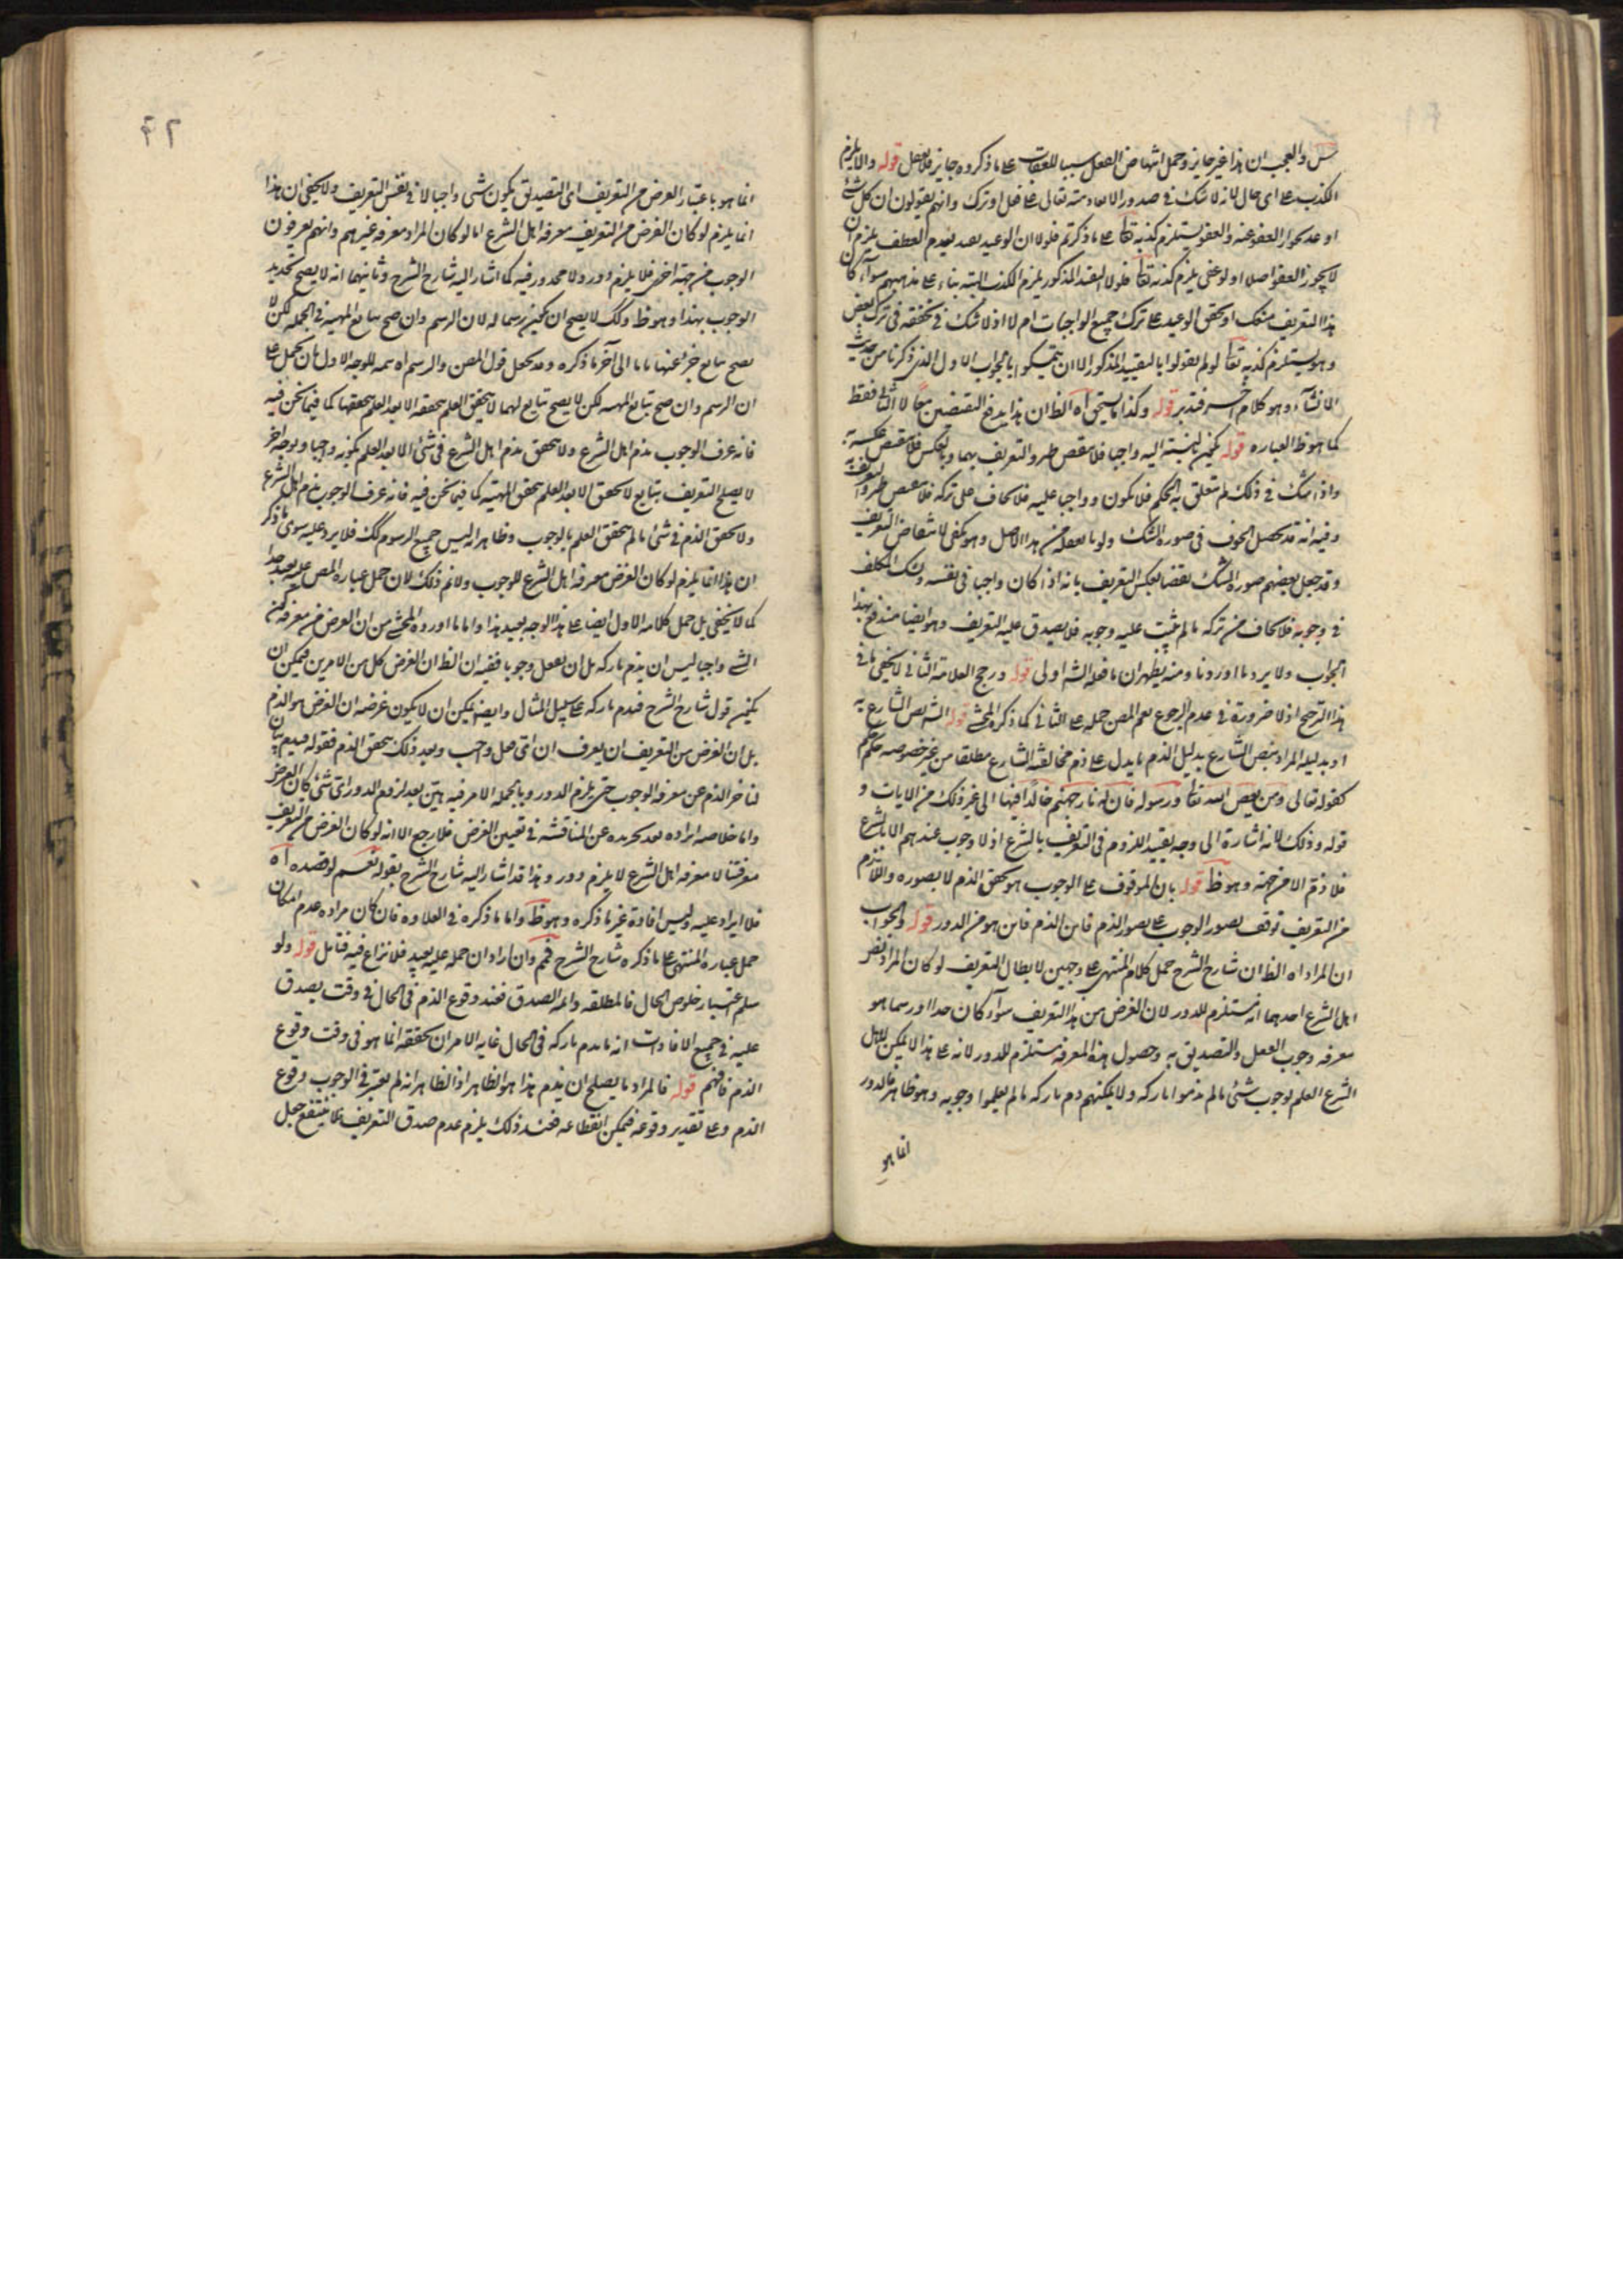 والعجب ان هذا غير جايز وحمل انتهاض الفعل سببا للعقاب علی ما ذكروه جايز قوله والا يلزم
الكذب علی ای حال لانه لا شك فی صدور الايعاد منه تعالی علی فعل او ترك وانهم يقولون ان كل شئ
اوعد بجواز العفو عنه والعفو يستلزم كذبه تعا علی ما ذكرتم فلو لا ان الوعيد بعدم العفو يلزم ان
لا يجوز العفو اصلا او لو عفی يلزم كذبه تعا فلو لا التقييد المذكور يلزم الكذب البتة بناء علی مذهبهم سواء كان
هذا التعريف او تحقق الوعيد علی ترك جميع الواجبات ام لا اذ لا شك فی تحققه فی ترك بعض
وهو يستلزم كذبه تعا لو لم يقولوا بالتقييد المذكور الا ان يتمسكوا بالجواب الاول الذی ذكرنا من حديث
الانشاء وهو كلام آخر فتدبر قوله وكذا ما يستحق اه الظ ان هذا يدفع النقضين معا لا الثانی فقط
كما هو ظ العباره قوله بالنسبة اليه واجبا فلا ينقض طرد التعريف بهما وبالعكس فلا ينقض عكسه
واذا شك فی ذلك لم يتعلق به الحكم فلا يكون واجبا عليه فلا يخاف علی تركه فلا ينتقض طرد التعريف به
وفيه انه قد يحصل الخوف فی صورة الشك وهو يكفی لانتقاض التعريف
وقد جعل بعضهم صورة الشك نقضا لعكس التعريف بانه اذا كان واجبا فی نفسه وشك المكلف
فی وجوبه فلا يخاف من تركه ما لم يثبت عليه وجوبه فلا يصدق عليه التعريف وهو ايضا مندفع بهذا
الجواب ولا يرد ما اوردنا ومنه يظهر ان ما فعله الش اولی قوله ورجح العلامة الثانی لا يخفی ما فی
هذا الترجيح اذ لا ضرورة فی عدم الرجوع نعم المص حمله علی الثانی كما ذكره المحشی قوله الش بنص الشارع به
او بدليله المراد بنص الشارع بدليل الذم ما يدل علی ذم مخالفة الشارع مطلقا من غير خصوصه حكم
كقوله تعالی ومن يعص الله تعا ورسوله فان له نار جهنم خالدا فيها الی غير ذلك من الايات و
قوله وذلك لانه اشارة الی وجه تقييد اللزوم فی التعريف بالشرع اذ لا وجوب عندهم الا بالشرع
فلا ذم الا من جهته وهو ظ قوله بان الموقوف علی الوجوب هو تحقق الذم لا تصوره واللازم
من التعريف توقف تصور الوجوب علی تصور الذم فاين الذم فاين هو من الدور قوله والجواب
ان المراد اه الظ ان شارح الشرح حمل كلام المنتهی علی وجهين لابطال التعريف لو كان المراد بنص
اهل الشرع احدهما انه مستلزم للدور لان الغرض من هذا التعريف سواء كان حدا او رسما هو
معرفه وجوب الفعل والتصديق به وحصول هذه المعرفة مستلزم للدور لانه علی هذا لا يمكن لاهل
الشرع العلم لوجوب شئ ما لم يذموا تاركه ولا يمكنهم ذم تاركه ما لم يعلموا وجوبه وهو ظاهر فالدور
انما هو
انما هو باعتبار الغرض من التعريف ای التصديق بكون شی واجبا لا فی نفس التعريف ولا يخفی ان هذا
انما يلزم لو كان الغرض من التعريف معرفه اهل الشرع اما لو كان المراد معرفه غيرهم وانهم يعرفون
الوجوب من جهة اخری فلا يلزم دور ولا محذور فيه كما اشار اليه شارح الشرح وثانيهما انه لا يصح تحديد
الوجوب بهذا وهو ظ وكك لا يصح ان يكون رسما له لان الرسم وان صح تابع المهية فی الجمله لكن لا
يصح تابع الی آخر ما ذكره وقد يحمل قول المص والرسم اه تتمه للوجه الاول بان يحمل علی
ان الرسم وان صح بتابع المهيه لكن لا يصح بتابع لها لا يتحقق العلم بتحققه الا بعد العلم بتحققها كما فيما نحن فيه
فانه عرف الوجوب بذم اهل الشرع ولا يتحقق ذم اهل الشرع فی شئ الا بعد العلم بكونه واجبا وبوجه آخر
لا يصلح التعريف بتابع لا يتحقق الا بعد العلم بتحقق المهيه كما فيما نحن فيه فانه عرف الوجوب بذم اهل الشرع
ولا يتحقق الذم فی شئ ما لم يتحقق العلم بالوجوب وظاهر انه ليس جميع الرسوم كك فلا يرد عليه سوی ما ذكر
ان هذا انما يلزم لو كان الغرض معرفه اهل الشرع للوجوب ولا نم ذلك لان حمل عباره المص عليه بعيد جدا
كما لا يخفی بل حمل كلامه الاول ايضا علی هذا الوجه بعيد هذا واما ما اورده المحشی من ان الغرض من معرفه كون
الشی واجبا ليس ان يذم تاركه بل ان يفعل وجوبا ففيه ان الظ ان الغرض كل من الامرين فيمكن ان
يكون قول شارح الشرح فيذم تاركه علی سبيل المثال وايضا يمكن ان لا يكون غرضه ان الغرض هو الذم
بل ان الغرض من التعريف ان يعرف ان ای فعل واجب وبعد ذلك يتحقق الذم فقوله فيذم بيان
لتاخر الذم عن معرفه الوجوب حتی يلزم الدور وبالجمله الامر فيه هين بعد لزوم الدور ای شئ كان الغرض
واما خلاصه ايراده بعد تجريده عن المناقشة فی تعيين الغرض فلا يرجع الا انه لو كان الغرض من التعريف
معرفتنا لا معرفه اهل الشرع لا يلزم دور وهذا قد اشار اليه شارح الشرح بقوله نعم لو قصده اه
فلا ايراد عليه وليس افادة غير ما ذكره وهو ظ واما ما ذكره فی العلاوه فان كان مراده عدم امكان
حمل عباره المنتهی علی ما ذكره شارح الشرح فمم وان اراد ان حمله عليه بعيد فلا نزاع فيه فتامل قوله ولو
سلم اعتبار خلوص الحال فالمطلقه دائمه الصدق فعند وقوع الذم فی الحال فی وقت يصدق
عليه فی جميع الاوقات انه يذم تاركه فی الحال غايه الامر ان تحققه انما هو فی وقت وقوع
الذم فافهم قوله فالمراد ما يصلح ان يذم هذا هو الظاهر اذ الظاهر انه لم يعتبر فی الوجوب وقوع
الذم وعلی تقدير وقوعه فيمكن انقطاعه فعند ذلك يلزم عدم صدق التعريف فلا ينتفع جعل